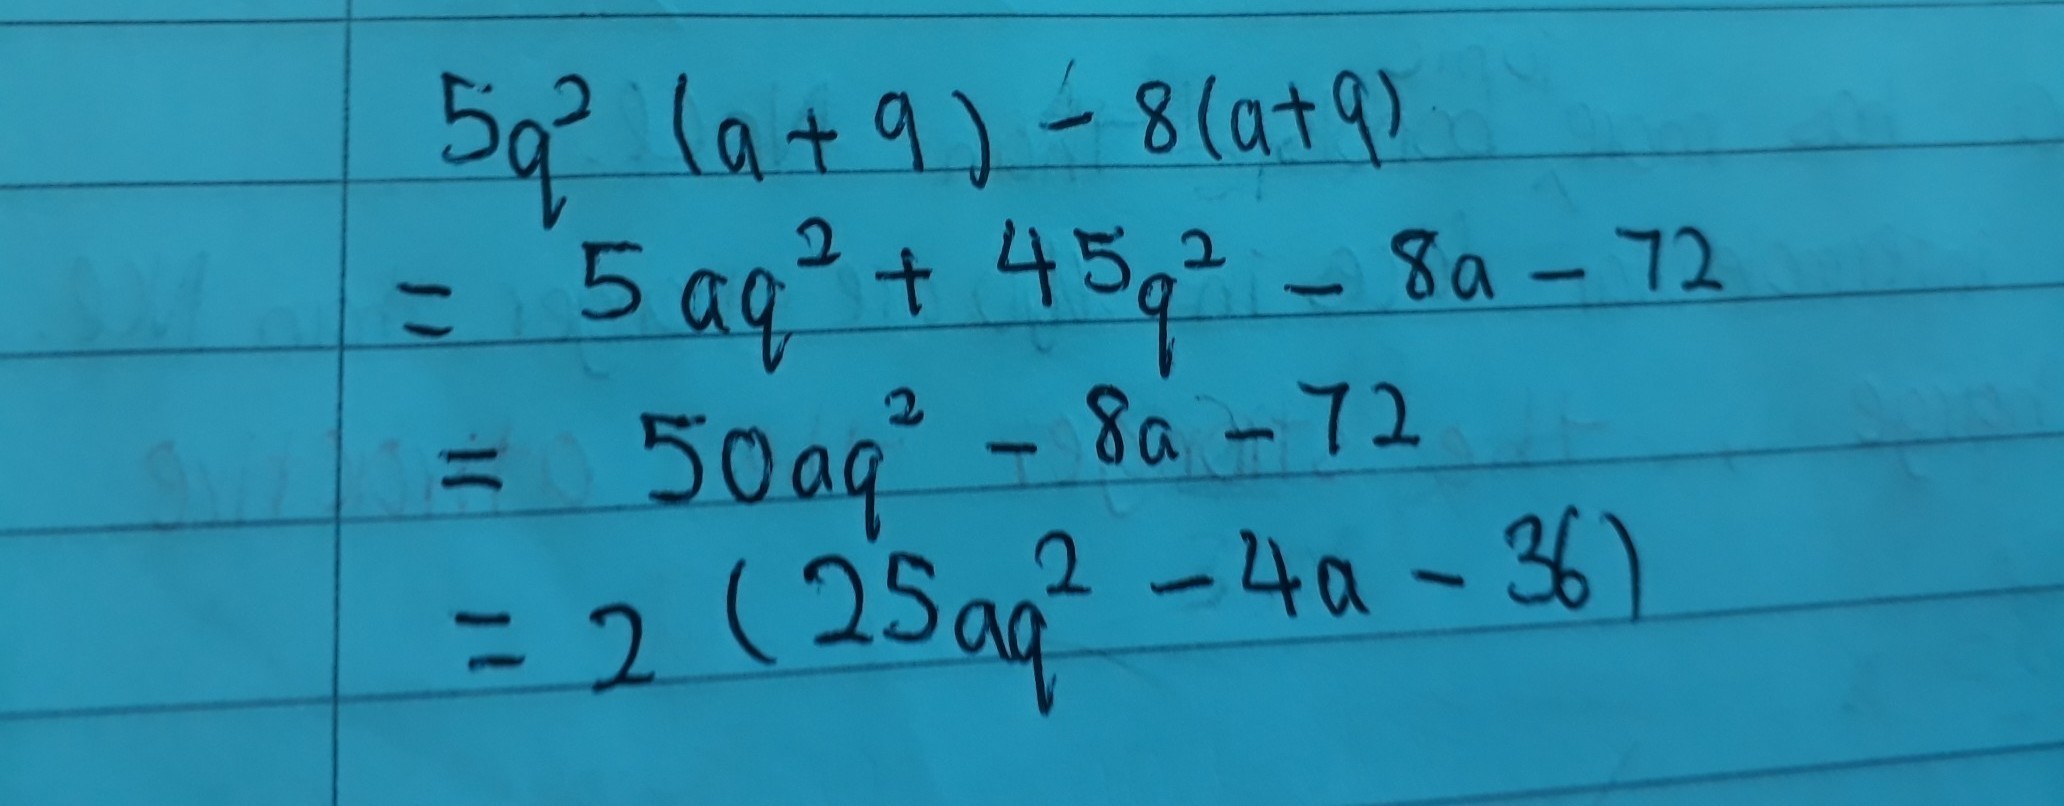 5q² (a + 9) - 8(a+9)
= 5aq² + 45q² - 8a - 72
= 50aq² - 8a - 72
= 2 (25aq² - 4a - 36)